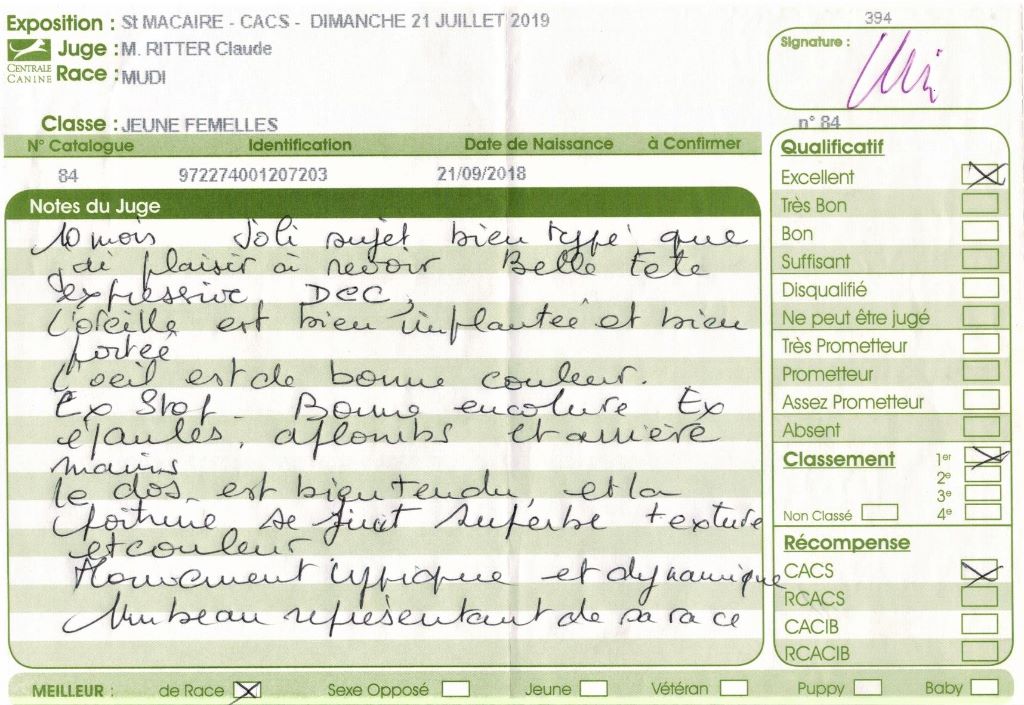 Exposition : St MACAIRE - CACS - DIMANCHE 21 JUILLET 2019
394
CENTRALE CANINE
Juge : M. RITTER Claude
Race : MUDI
Signature :
Classe : JEUNE FEMELLES
n° 84
N° Catalogue Identification Date de Naissance à Confirmer
84 972274001207203 21/09/2018
Notes du Juge
10 mois Joli sujet bien typé que
j'ai plaisir à revoir Belle Tete
expressive DCC,
L'oreille est bien implantée et bien
portée
L'oeil est de bonne couleur.
Ex Stop - Bonne encolure Ex
épaules, aplombs et arrière
mains
le dos est bien tendu, et la
poitrine se finit superbe texture
et couleur
Mouvement typique et dynamique
Un beau représentant de sa race
Qualificatif
Excellent
Très Bon
Bon
Suffisant
Disqualifié
Ne peut être jugé
Très Prometteur
Prometteur
Assez Prometteur
Absent
Classement 1er
2e
3e
Non Classé 4e
Récompense
CACS
RCACS
CACIB
RCACIB
MEILLEUR : de Race Sexe Opposé Jeune Vétéran Puppy Baby